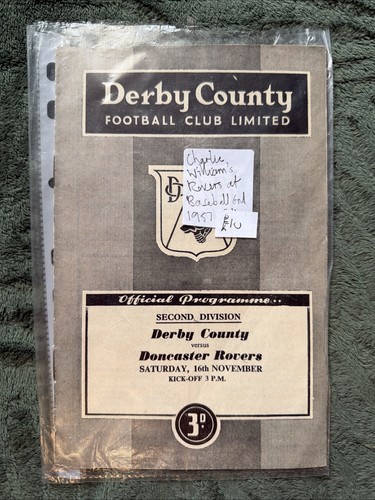 Derby County
FOOTBALL CLUB LIMITED
Charlie
William's
Rovers at
Baseball Gnd
1957
£10
Official Programme..
SECOND DIVISION
Derby County
versus
Doncaster Rovers
SATURDAY, 16th NOVEMBER
KICK-OFF 3 P.M.
3D.